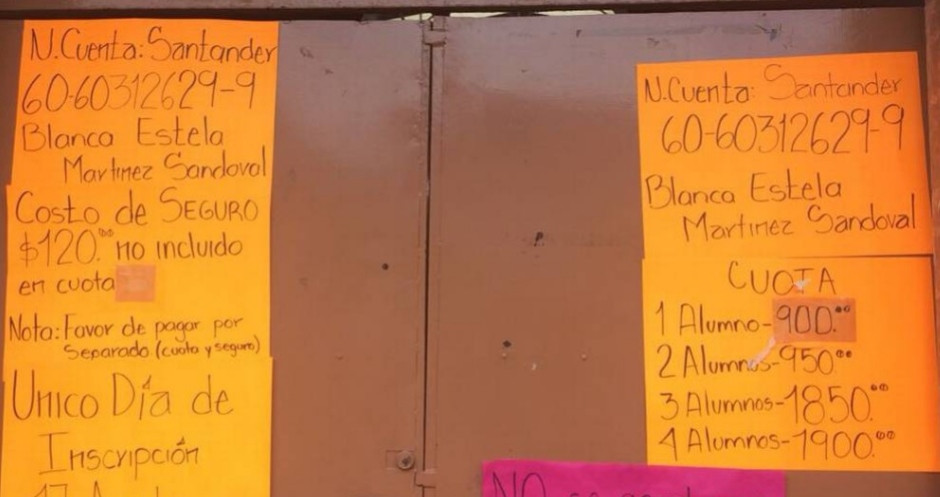 N.Cuenta: Santander
60-60312629-9
Blanca Estela
Martinez Sandoval
Costo de SEGURO
$120.⁰⁰ no incluido
en cuota
Nota: Favor de pagar por
Separado (cuota y seguro)
Unico Día de
Inscripción
N.Cuenta: Santander
60-60312629-9
Blanca Estela
Martinez Sandoval
CUOTA
1 Alumno-900.⁰⁰
2 Alumnos-950⁰⁰
3 Alumnos-1850.⁰⁰
4 Alumnos-1900.⁰⁰
NO